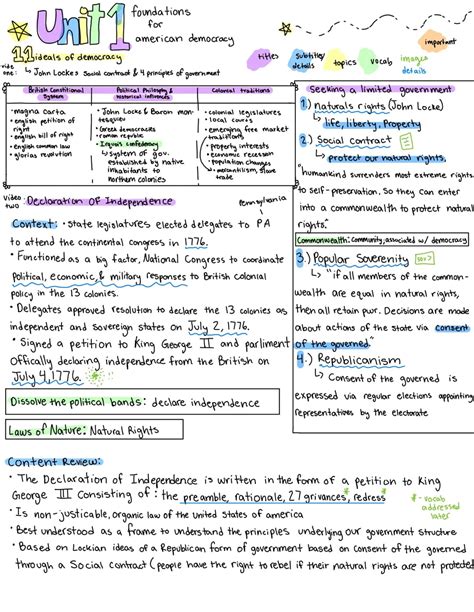 Unit 1 foundations
for
american democracy
important
1.1 ideals of democracy
titles
subtitles/
details
topics
vocab
images
details
video
one: ↳ John Lockes Social contract & 4 principles of government
British Constitutional
System
• magna carta
• english petition of
right
• english bill of right
• english common law
• glorias revolution
Political Philosophy &
historical influences
• John Locke & Baron mon-
tesquier
• Greek democracies
• roman republic
• Iriquois confedency
↳ system of gov.
established by native
inhabitants to
northern colonies
Colonial traditions
• colonial legislatures
• local courts
• emerging free market
traditions
↳ property interests
• economic recession
• population changes
• mercantilism, slave
trade
Seeking a limited government
1.) naturals rights (John Locke)
↳ life, liberty, Property
2.) Social contract
↳ protect our natural rights,
"humankind surrenders most extreme rights
to self-preservation, so they can enter
into a commonwealth to protect natural
rights."
Commonwealth: community, associated w/ democracy
3.) Popular Soverenity
↳ "if all members of the common-
wealth are equal in natural rights,
then all retain pwr. Decisions are made
about actions of the state via consent
of the governed"
4.) Republicanism
↳ Consent of the governed is
expressed via regular elections appointing
representatives by the electorate
video
two: Declaration Of Independence
Pennsylvania
Context: • State legislatures elected delegates to PA
to attend the continental congress in 1776.
• Functioned as a big factor, National Congress to coordinate
political, economic, & military responses to British Colonial
policy in the 13 colonies.
• Delegates approved resolution to declare the 13 colonies as
independent and Sovereign states on July 2, 1776.
• Signed a petition to King George III and parliment
Offically declaring independence from the British on
July 4, 1776.
Dissolve the political bands: declare independence
Laws of Nature: Natural Rights
Content Review:
• The Declaration of Independence is written in the form of a petition to King
George III Consisting of: the preamble, rationale, 27 grivances, redress
* - vocab
addressed
later
• Is non-justicable, organic law of the united States of america
• Best understood as a frame to understand the principles underlying our government structure
• Based on Lockian ideas of a Republican form of government based on Consent of the governed
through a Social contract (people have the right to rebel if their natural rights are not protected